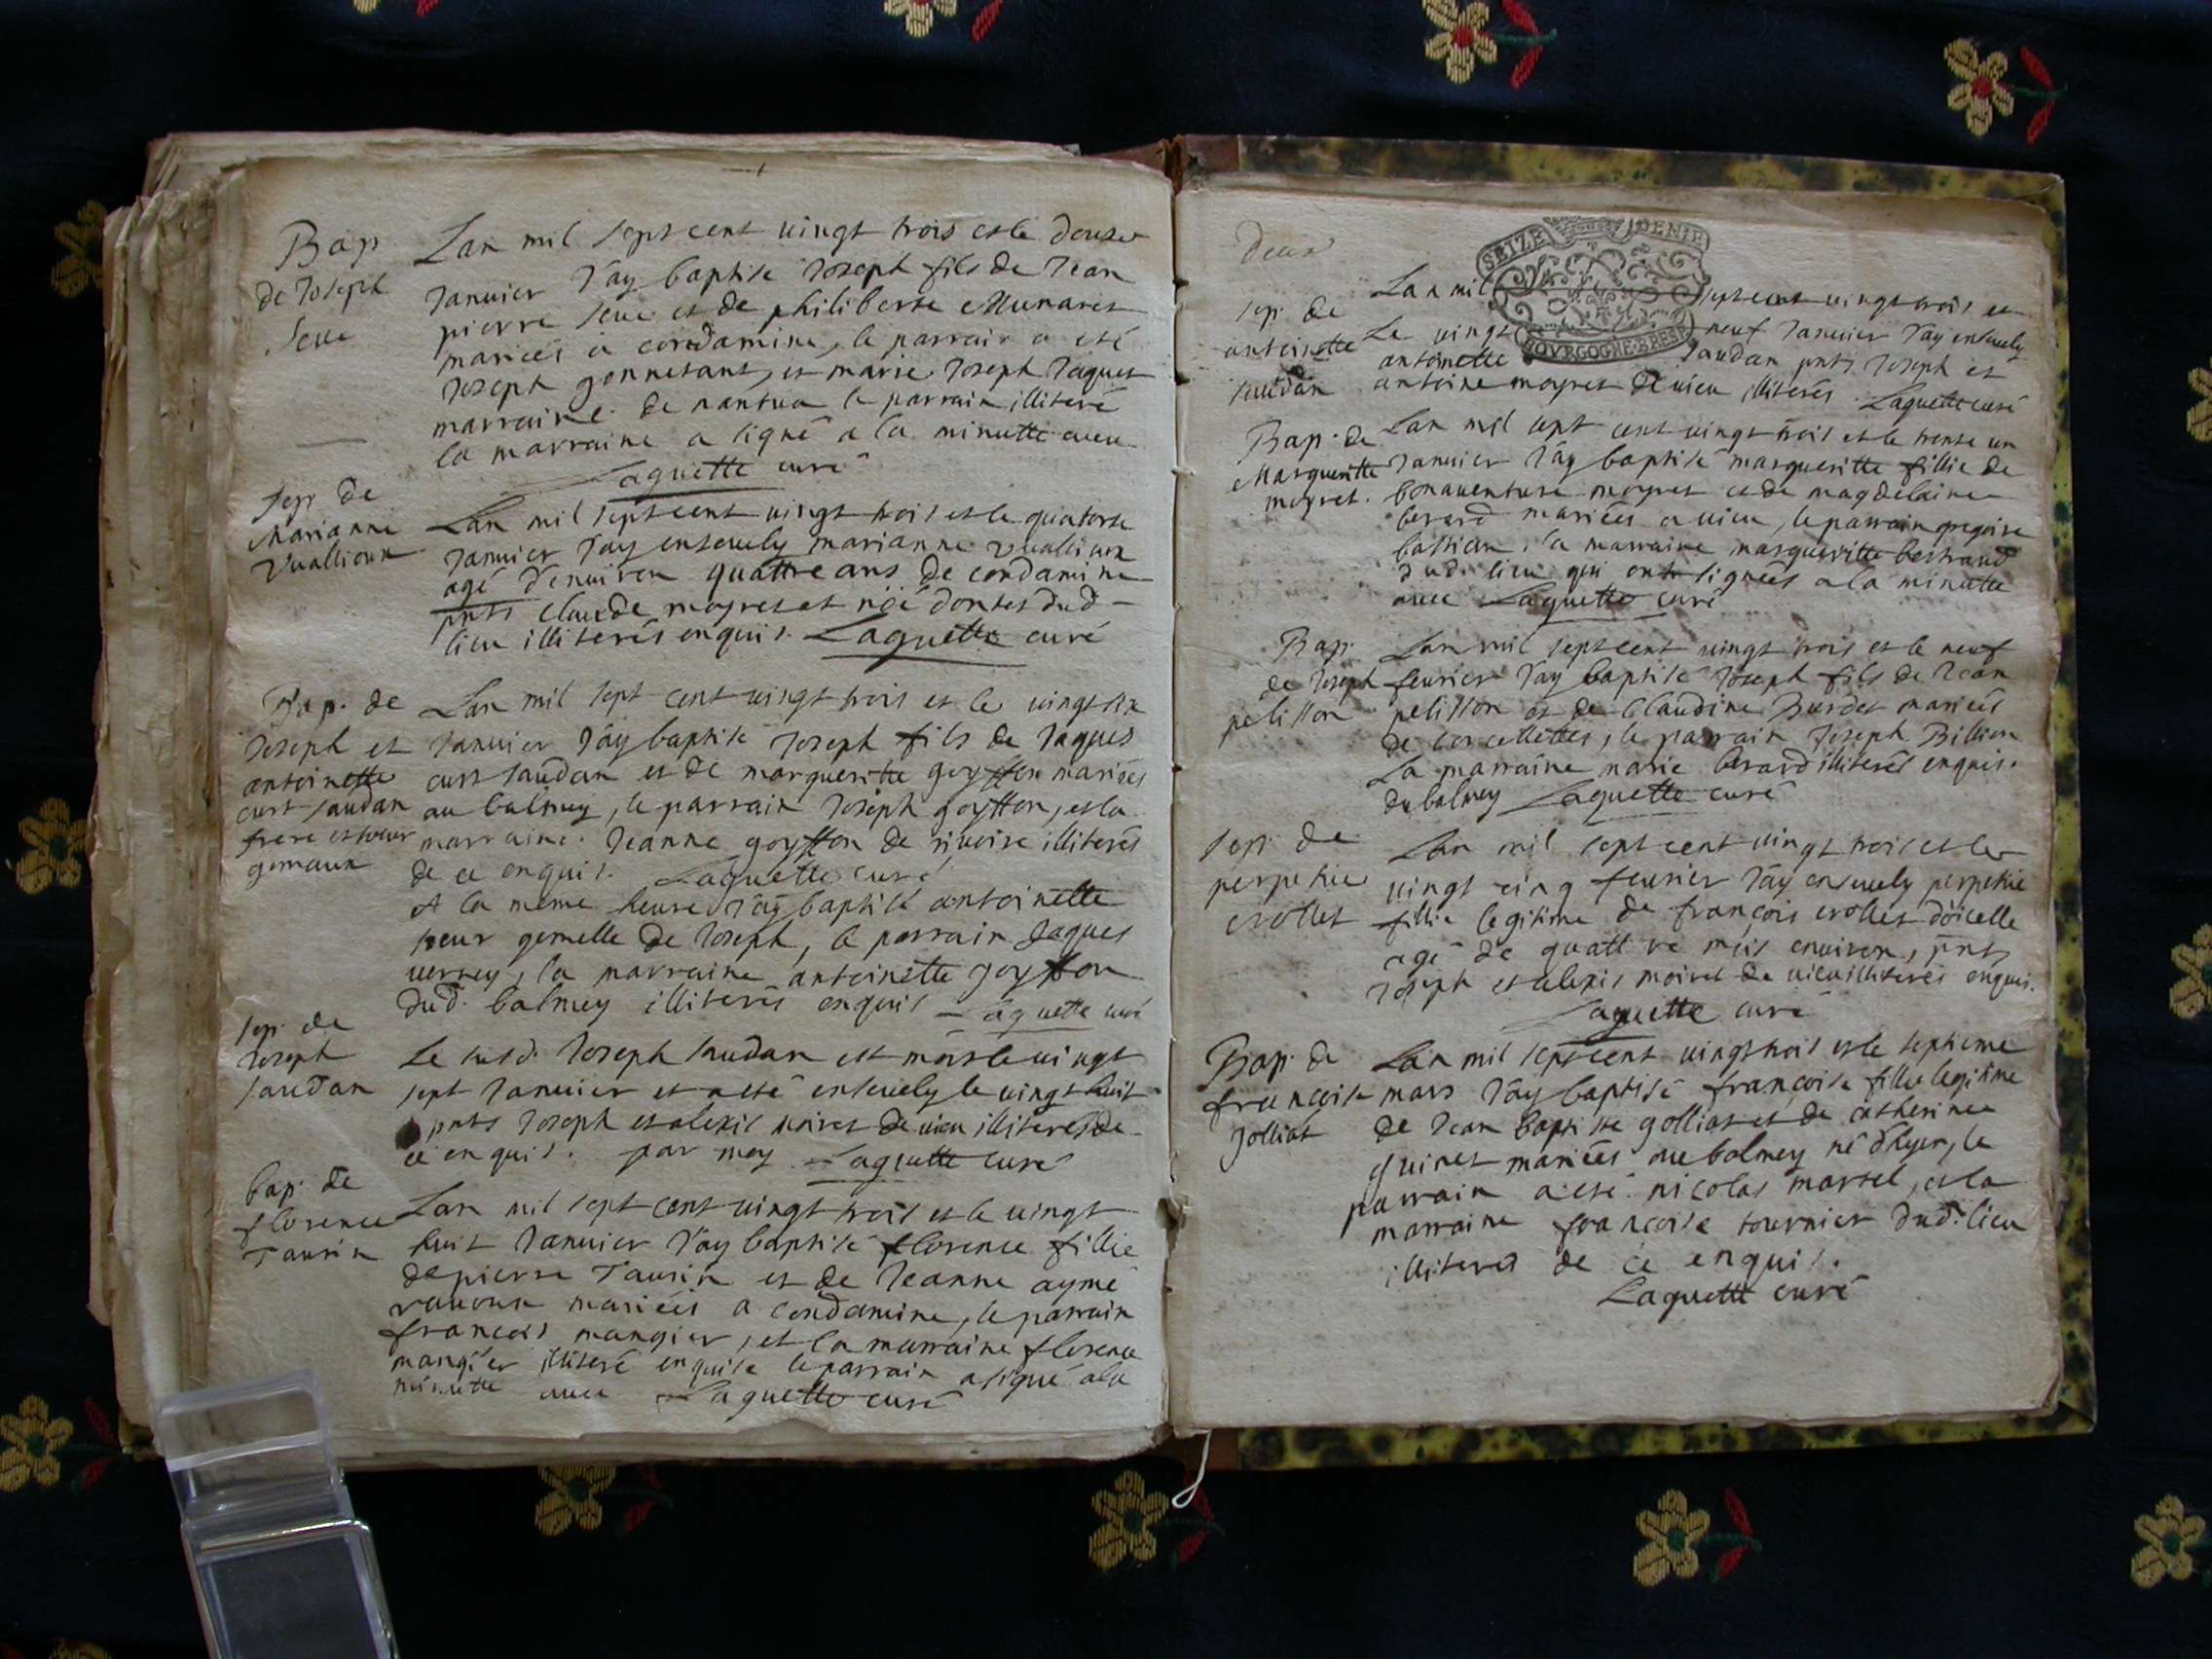 Bap
de Joseph
Seue
Lan mil sept cent uingt trois et le douze
Januier J'ay baptisé Joseph fils de Jean
pierre seue et de philiberte
mariées a condamine, le parrain a esté
Joseph gonnetant, et marie Joseph Jaquet
marraine de nantua le parrain illiteré
la marraine a signé a la minutte auec
Laguette curé
sep. de
Marianne
Vuallioux
Lan mil sept cent uingt trois et le quatorze
Januier J'ay enseuely marianne vuallioux
agé d'enuiron quattre ans de condamine
pnts claude moyret et dontet dud
lieu illiterés enquis. Laguette curé
Bap. de
Joseph et
antoinette
curt saudan
frere et soeur
gemaux
Lan mil sept cent uingt trois et le uingt six
Januier J'ay baptisé Joseph fils de Jaques
curt saudan et de margueritte goyffon mariées
au balmey, le parrain Joseph goyffon, et la
marraine Jeanne goyffon de riuoire illiterés
de ce enquis. Laguette curé
A la meme heure J'ay baptisé antoinette
soeur gemelle de Joseph, le parrain Jaques
uerney, la marraine antoinette goyffon
dud. balmey illiterés enquis Laguette curé
sep. de
Joseph
saudan
Le susd. Joseph saudan est mort le uingt
sept Januier et a esté enseuely le uingt huit
pnts Joseph et alexis moiret de uieu illiterés de
ce enquis. par moy Laguette curé
bap. de
florence
Tausin
Lan mil sept cent uingt trois et le uingt
huit Januier J'ay baptisé florence fillie
de pierre Tausin et de Jeanne aymé
rauoux mariées a condamine, le parrain
francois mangier, et la marraine florence
mangier illiteré enquise le parrain a signé a la
minutte auec Laguette curé
deux
SEIZE DENIE
BOVRGOGNE BRESSE
sep. de
antoinette
saudan
Lan mil sept cent uingt trois et
Le uingt neuf Januier J'ay enseuely
antoinette saudan pnts Joseph et
antoine moyret de uieu illiterés Laguette curé
Bap. de
Margueritte
moyret.
Lan mil sept cent uingt trois et le trente un
Januier J'ay baptisé margueritte fillie de
bonauenture moyret et de magdelaine
berard mariées a uieu, le parrain gregoire
bastian, la marraine margueritte bertrand
dud. lieu qui ont signées a la minutte
auec Laguette curé
Bap.
de Joseph
pelisson
Lan mil sept cent uingt trois et le neuf
feurier J'ay baptisé Joseph fils de Jean
pelisson et de Claudine Burdet mariées
de corcellettes, le parrain Joseph Billion
La marraine marie berard illiterés enquis.
du balmey Laguette curé
sep. de
perpetue
crollet
Lan mil sept cent uingt trois et le
uingt cinq feurier J'ay enseuely perpetue
fillie legitime de françois crollet d'oicelle
agé de quattre mois enuiron, pnts
Joseph et alexis moiret de uieu illiterés enquis.
Laguette curé
Bap. de
francoise
golliat
Lan mil sept cent uingt trois et le septieme
mars J'ay baptisé françoise fillie legitime
de Jean baptiste golliat et de catherine
quinet mariées au balmey né d'hyer, le
parrain a esté nicolas martel, et la
marraine francoise tournier dud. lieu
illiterés de ce enquis.
Laguette curé